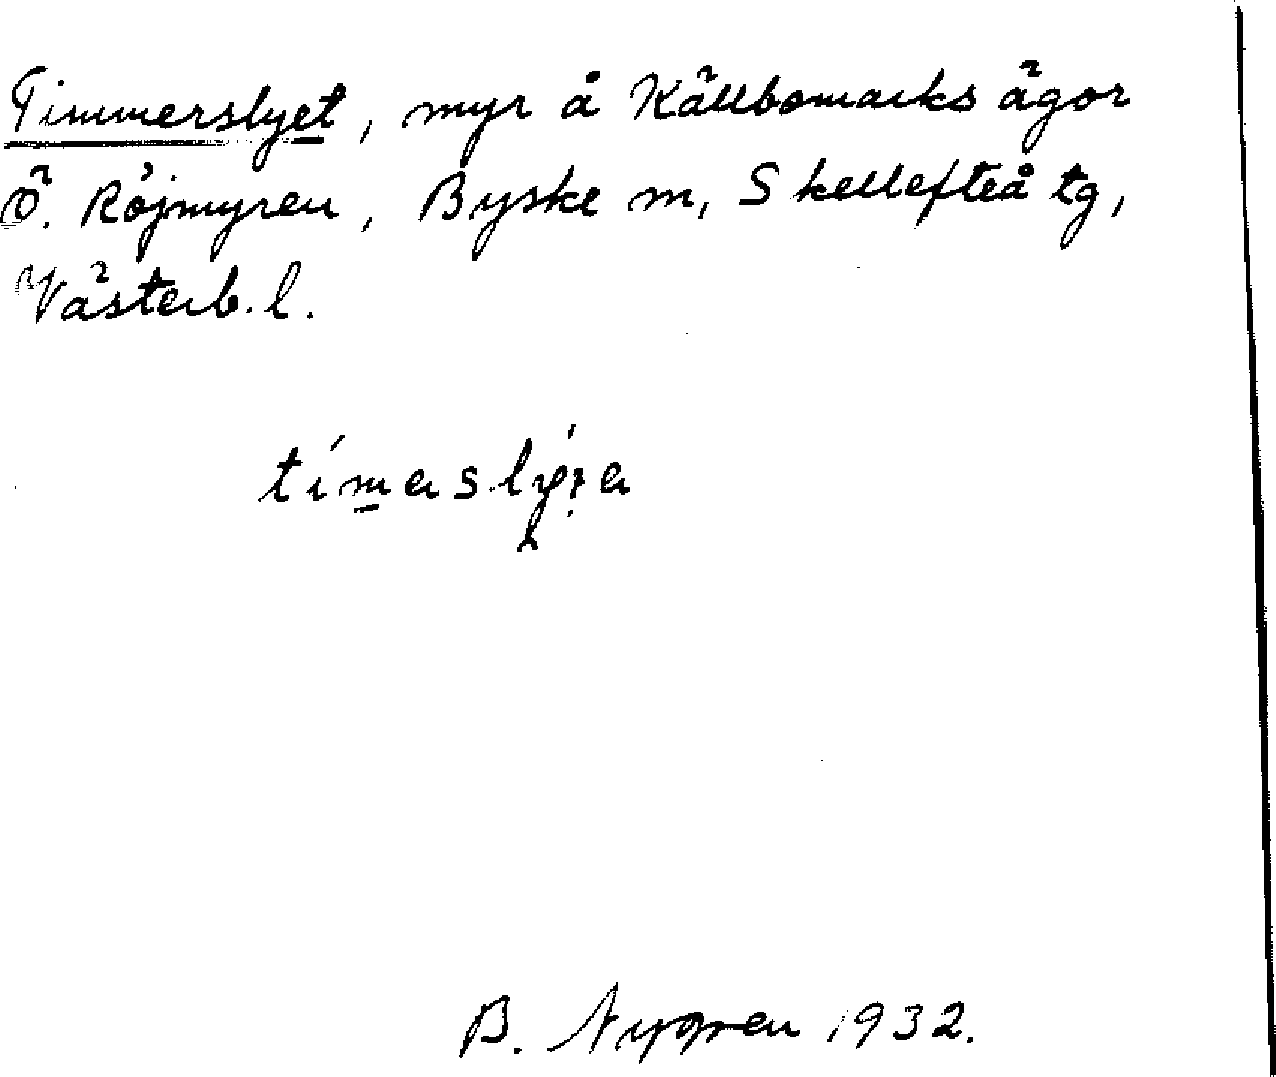 Timmerslyet, myr å Källbomarks ägor
Ö. Röjmyren, Byske m, Skellefteå tg,
Västerb. l.
B. Nygren 1932.